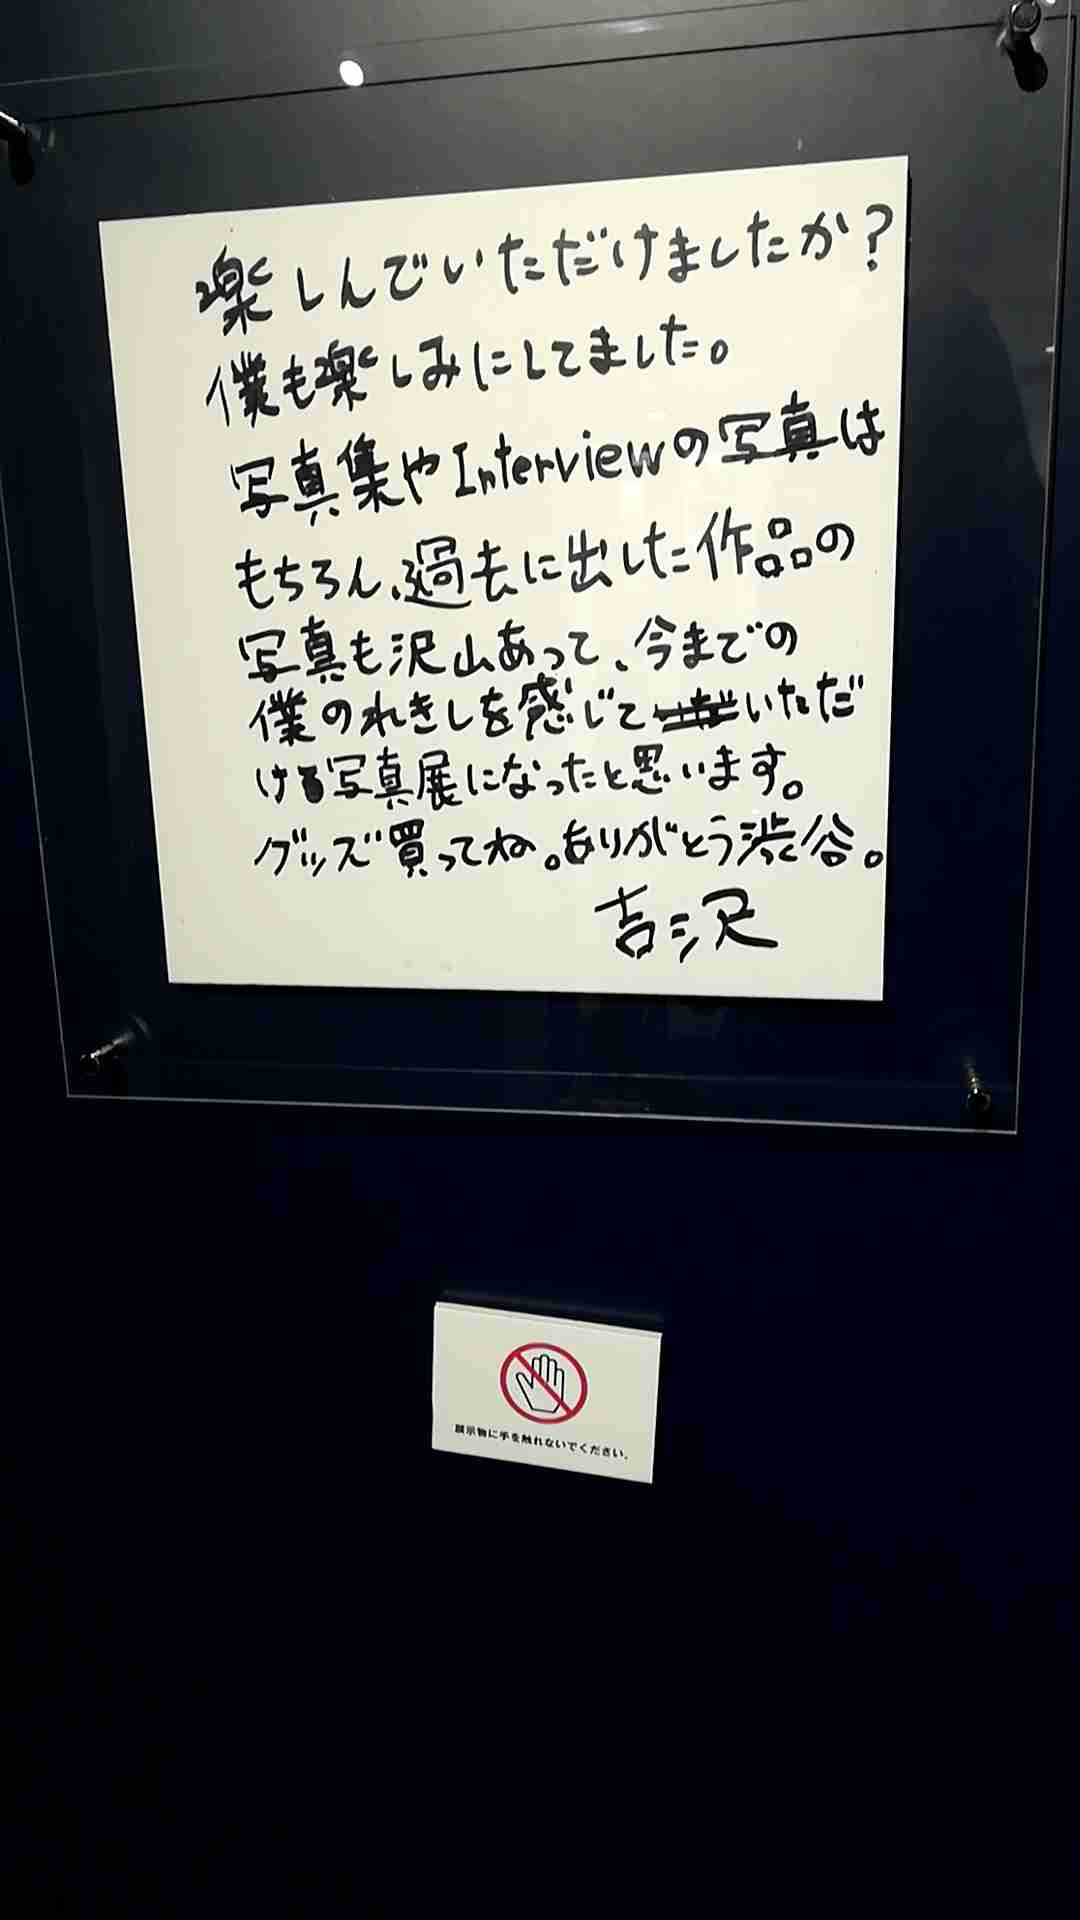 楽しんでいただけましたか?
僕も楽しみにしてました。
写真集やInterviewの写真は
もちろん、過去に出した作品の
写真も沢山あって、今までの
僕のれきしを感じていただ
ける写真展になったと思います。
グッズ買ってね。ありがとう渋谷。
吉沢
展示物に手を触れないでください。